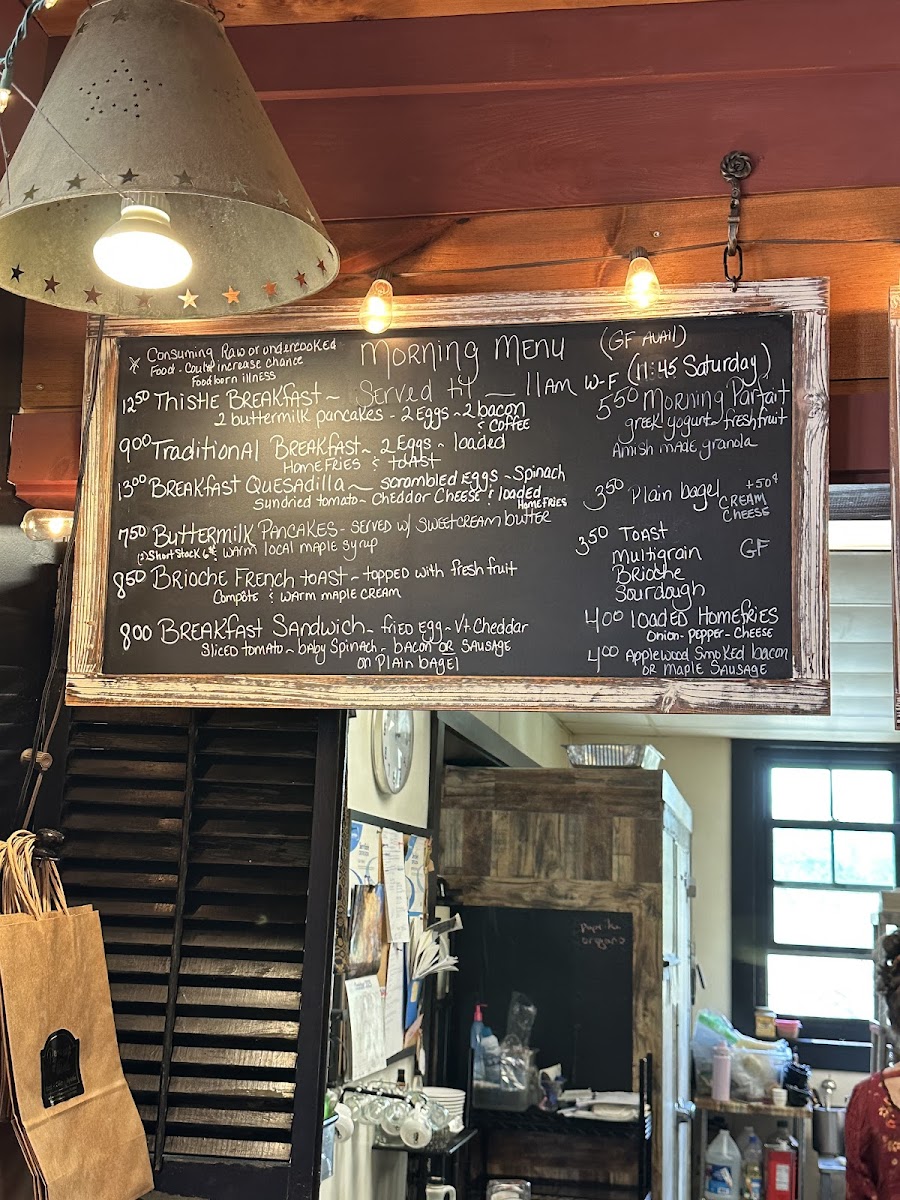 Morning Menu (GF Avail)
* Consuming Raw or undercooked
Food - Could increase chance
Foodborn illness
Served til — 11am W-F (11:45 Saturday)
12⁵⁰ Thistle Breakfast ~
2 buttermilk pancakes - 2 Eggs ~ 2 bacon
& coffee
9⁰⁰ Traditional Breakfast ~ 2 Eggs ~ loaded
Homefries & toast
13⁰⁰ Breakfast Quesadilla ~ scrambled Eggs ~ Spinach
sundried tomato ~ Cheddar Cheese & loaded
Homefries
7⁵⁰ Buttermilk Pancakes - served w/ sweetcream butter
(2) Short Stack 6⁰⁰ & warm local maple syrup
8⁵⁰ Brioche French toast ~ topped with fresh fruit
Compote & warm maple cream
8⁰⁰ Breakfast Sandwich ~ fried egg - Vt. Cheddar
sliced tomato ~ baby spinach - bacon or sausage
on plain bagel
5⁵⁰ Morning Parfait
greek yogurt ~ fresh fruit
Amish made granola
3⁵⁰ Plain bagel +50¢
CREAM
CHEESE
3⁵⁰ Toast
Multigrain GF
Brioche
Sourdough
4⁰⁰ loaded Homefries
Onion - pepper - cheese
4⁰⁰ Applewood smoked bacon
or maple sausage
paprika
oregano